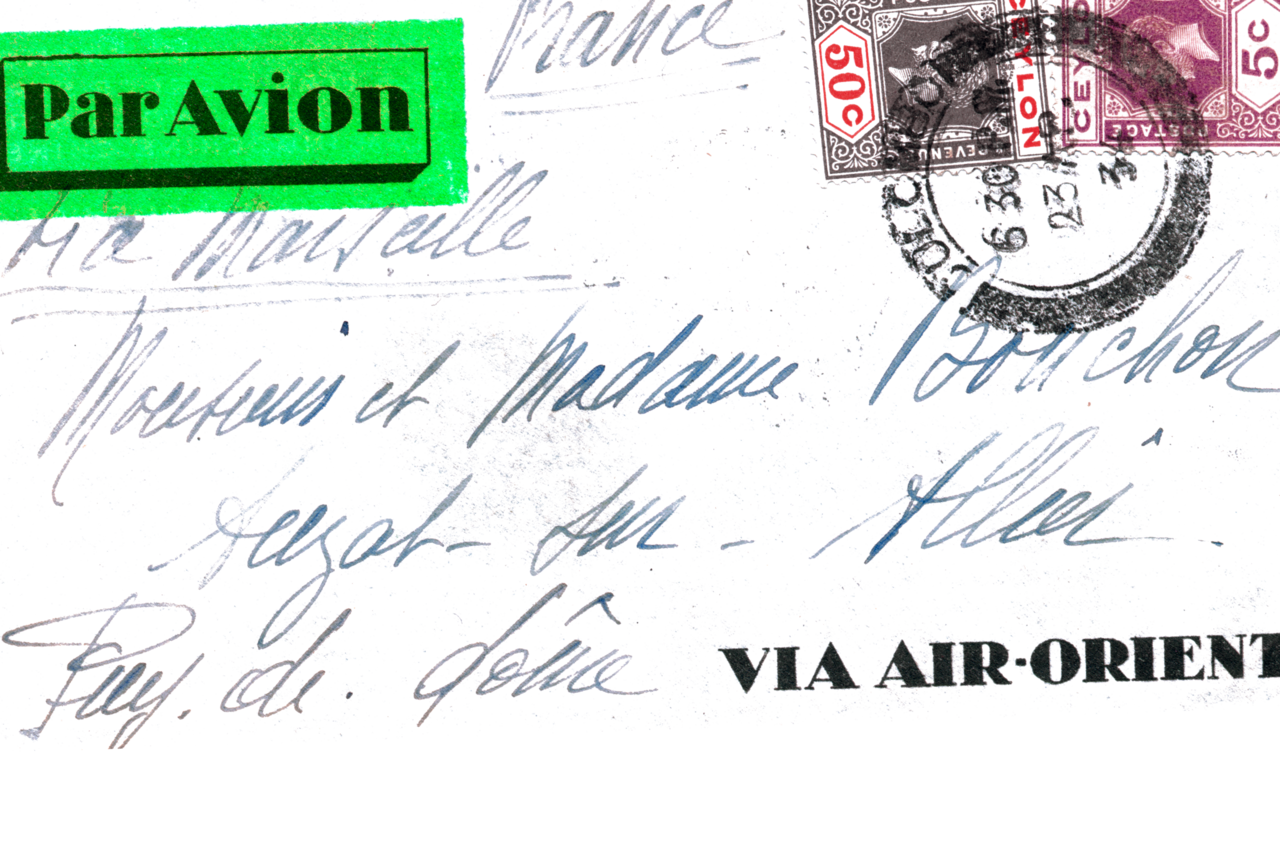 France
Par Avion
Via Marseille
50c
CEYLON
REVENUE
CEYLO
POSTAGE
5c
6 30
23
34
Monsieur et Madame Bouchon
Auzat - sur - Allier
Puy. de. dôme
VIA AIR-ORIENT